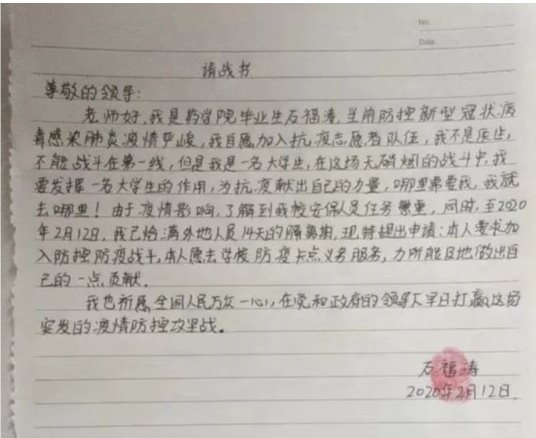 No.
Date.
请战书
尊敬的领导:
老师好,我是药学院毕业生石福涛,当前防控新型冠状病
毒感染肺炎疫情严峻,我自愿加入抗疫志愿者队伍,我不是医生,
不能战斗在第一线,但是我是一名大学生,在这场无硝烟的战斗中,我
要发挥一名大学生的作用,为抗疫献出自己的力量,哪里需要我,我就
去哪里!由于疫情影响,了解到我校安保人员任务繁重,同时,至2020
年2月12日,我已恰满外地人员14天的隔离期,现特提出申请:本人要求加
入防控防疫战斗,本人愿去学校防疫卡点义务服务,力所能及地做出自
己的一点贡献.
我也祈愿全国人民万众一心,在党和政府的领导下早日打赢这场
突发的疫情防控攻坚战。
石福涛
2020年2月12日.